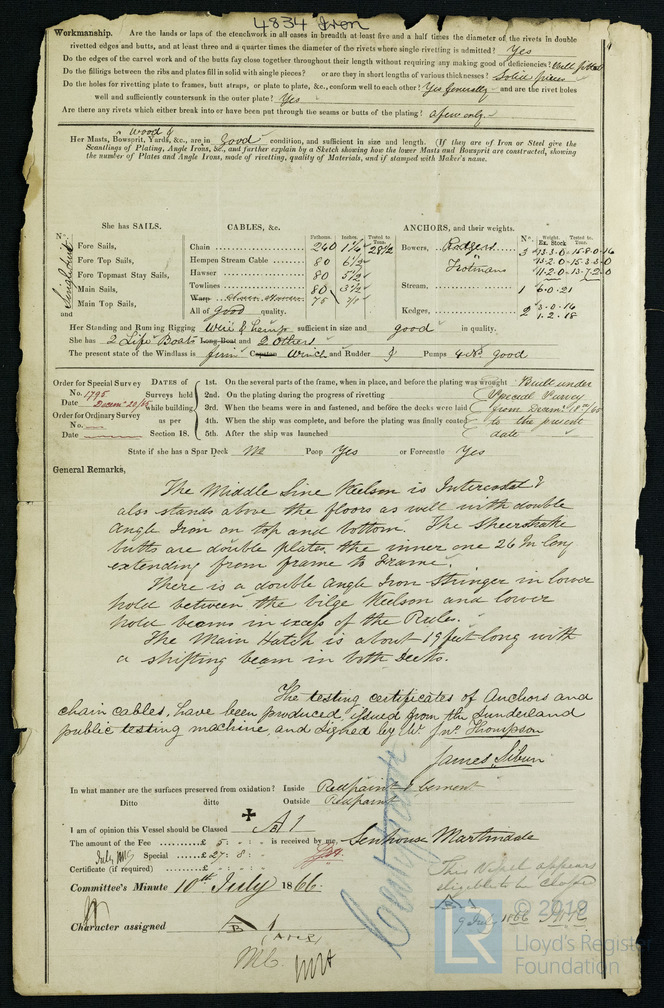 4834 Iron
Workmanship. Are the lands or laps of the clenchwork in all cases in breadth at least five and a half times the diameter of the rivets in double
rivetted edges and butts, and at least three and a quarter times the diameter of the rivets where single rivetting is admitted? Yes
Do the edges of the carvel work and of the butts fay close together throughout their length without requiring any making good of deficiencies? Well fitted
Do the fillings between the ribs and plates fill in solid with single pieces? or are they in short lengths of various thicknesses? Solid pieces
Do the holes for rivetting plate to frames, butt straps, or plate to plate, &c., conform well to each other? Yes Generally and are the rivet holes
well and sufficiently countersunk in the outer plate? Yes
Are there any rivets which either break into or have been put through the seams or butts of the plating? a few only
Wood &
Her Masts, Bowsprit, Yards, &c., are in Good condition, and sufficient in size and length. (If they are of Iron or Steel give the
Scantlings of Plating, Angle Irons, &c., and further explain by a Sketch showing how the lower Masts and Bowsprit are constructed, showing
the number of Plates and Angle Irons, mode of rivetting, quality of Materials, and if stamped with Maker's name.
She has SAILS. CABLES, &c. ANCHORS, and their weights.
N°. Fathoms. Inches. Tested to Tons. N° Weight. Ex. Stock Tested to Tons.
Fore Sails, Chain 240 28 1/2 Bowers, Rodgers 3 13.3.0 15.8.0
Fore Top Sails, Hempen Stream Cable 80 6 1/2 13.2.0 15.3.3.0
Fore Topmast Stay Sails, Hawser 80 5 1/2 Trotmans 11.2.0 13.7.2.0
Main Sails, Towlines 80 3 1/2 Stream, 1 6.0.21
Main Top Sails, Warp 75
and All of good quality. Kedges, 2 3.0.14
1.2.18
Her Standing and Running Rigging Wire & hemp sufficient in size and good in quality.
She has 2 Life Boats Long Boat and 2 Others
The present state of the Windlass is firm Capstan Winch and Rudder Pumps 4 No. good
Order for Special Survey
No. 1795
Date Decem. 20/65
Order for Ordinary Survey
No.
Date
DATES of Surveys held while building as per Section 18.
1st. On the several parts of the frame, when in place, and before the plating was wrought Built under
2nd. On the plating during the progress of rivetting Special Survey
3rd. When the beams were in and fastened, and before the decks were laid from Decem.
4th. When the ship was complete, and before the plating was finally coated to the present
5th. After the ship was launched date
State if she has a Spar Deck No Poop Yes or Forecastle Yes
General Remarks,
The Middle Line Keelson is Intercostal &
also stands above the floors as well with double
Angle Iron on top and bottom. The Sheerstrake
butts are double plates, the inner one 26 In long
extending from frame to Frame.
There is a double Angle Iron Stringer in lower
hold between the bilge Keelson and lower
hold beams in excess of the Rules.
The Main Hatch is about 19 feet long with
a shifting beam in both Decks.
The testing certificates of Anchors and
chain cables, have been produced, issued from the Sunderland
public testing machine, and signed by Mr. Jno. Thompson
James Sibun
In what manner are the surfaces preserved from oxidation? Inside Red paint & Cement
Ditto ditto Outside Red paint
I am of opinion this Vessel should be Classed A 1
The amount of the Fee £ 5 : : is received by me, Senhouse Martindale
July Special £ 27 : 8 :
Certificate (if required) £ : :
This Vessel appears
eligible to be classed
A 1
9 July 1866
Committee's Minute 10th July 1866
Character assigned A B 1
© 2019
LR
Lloyd's Register
Foundation